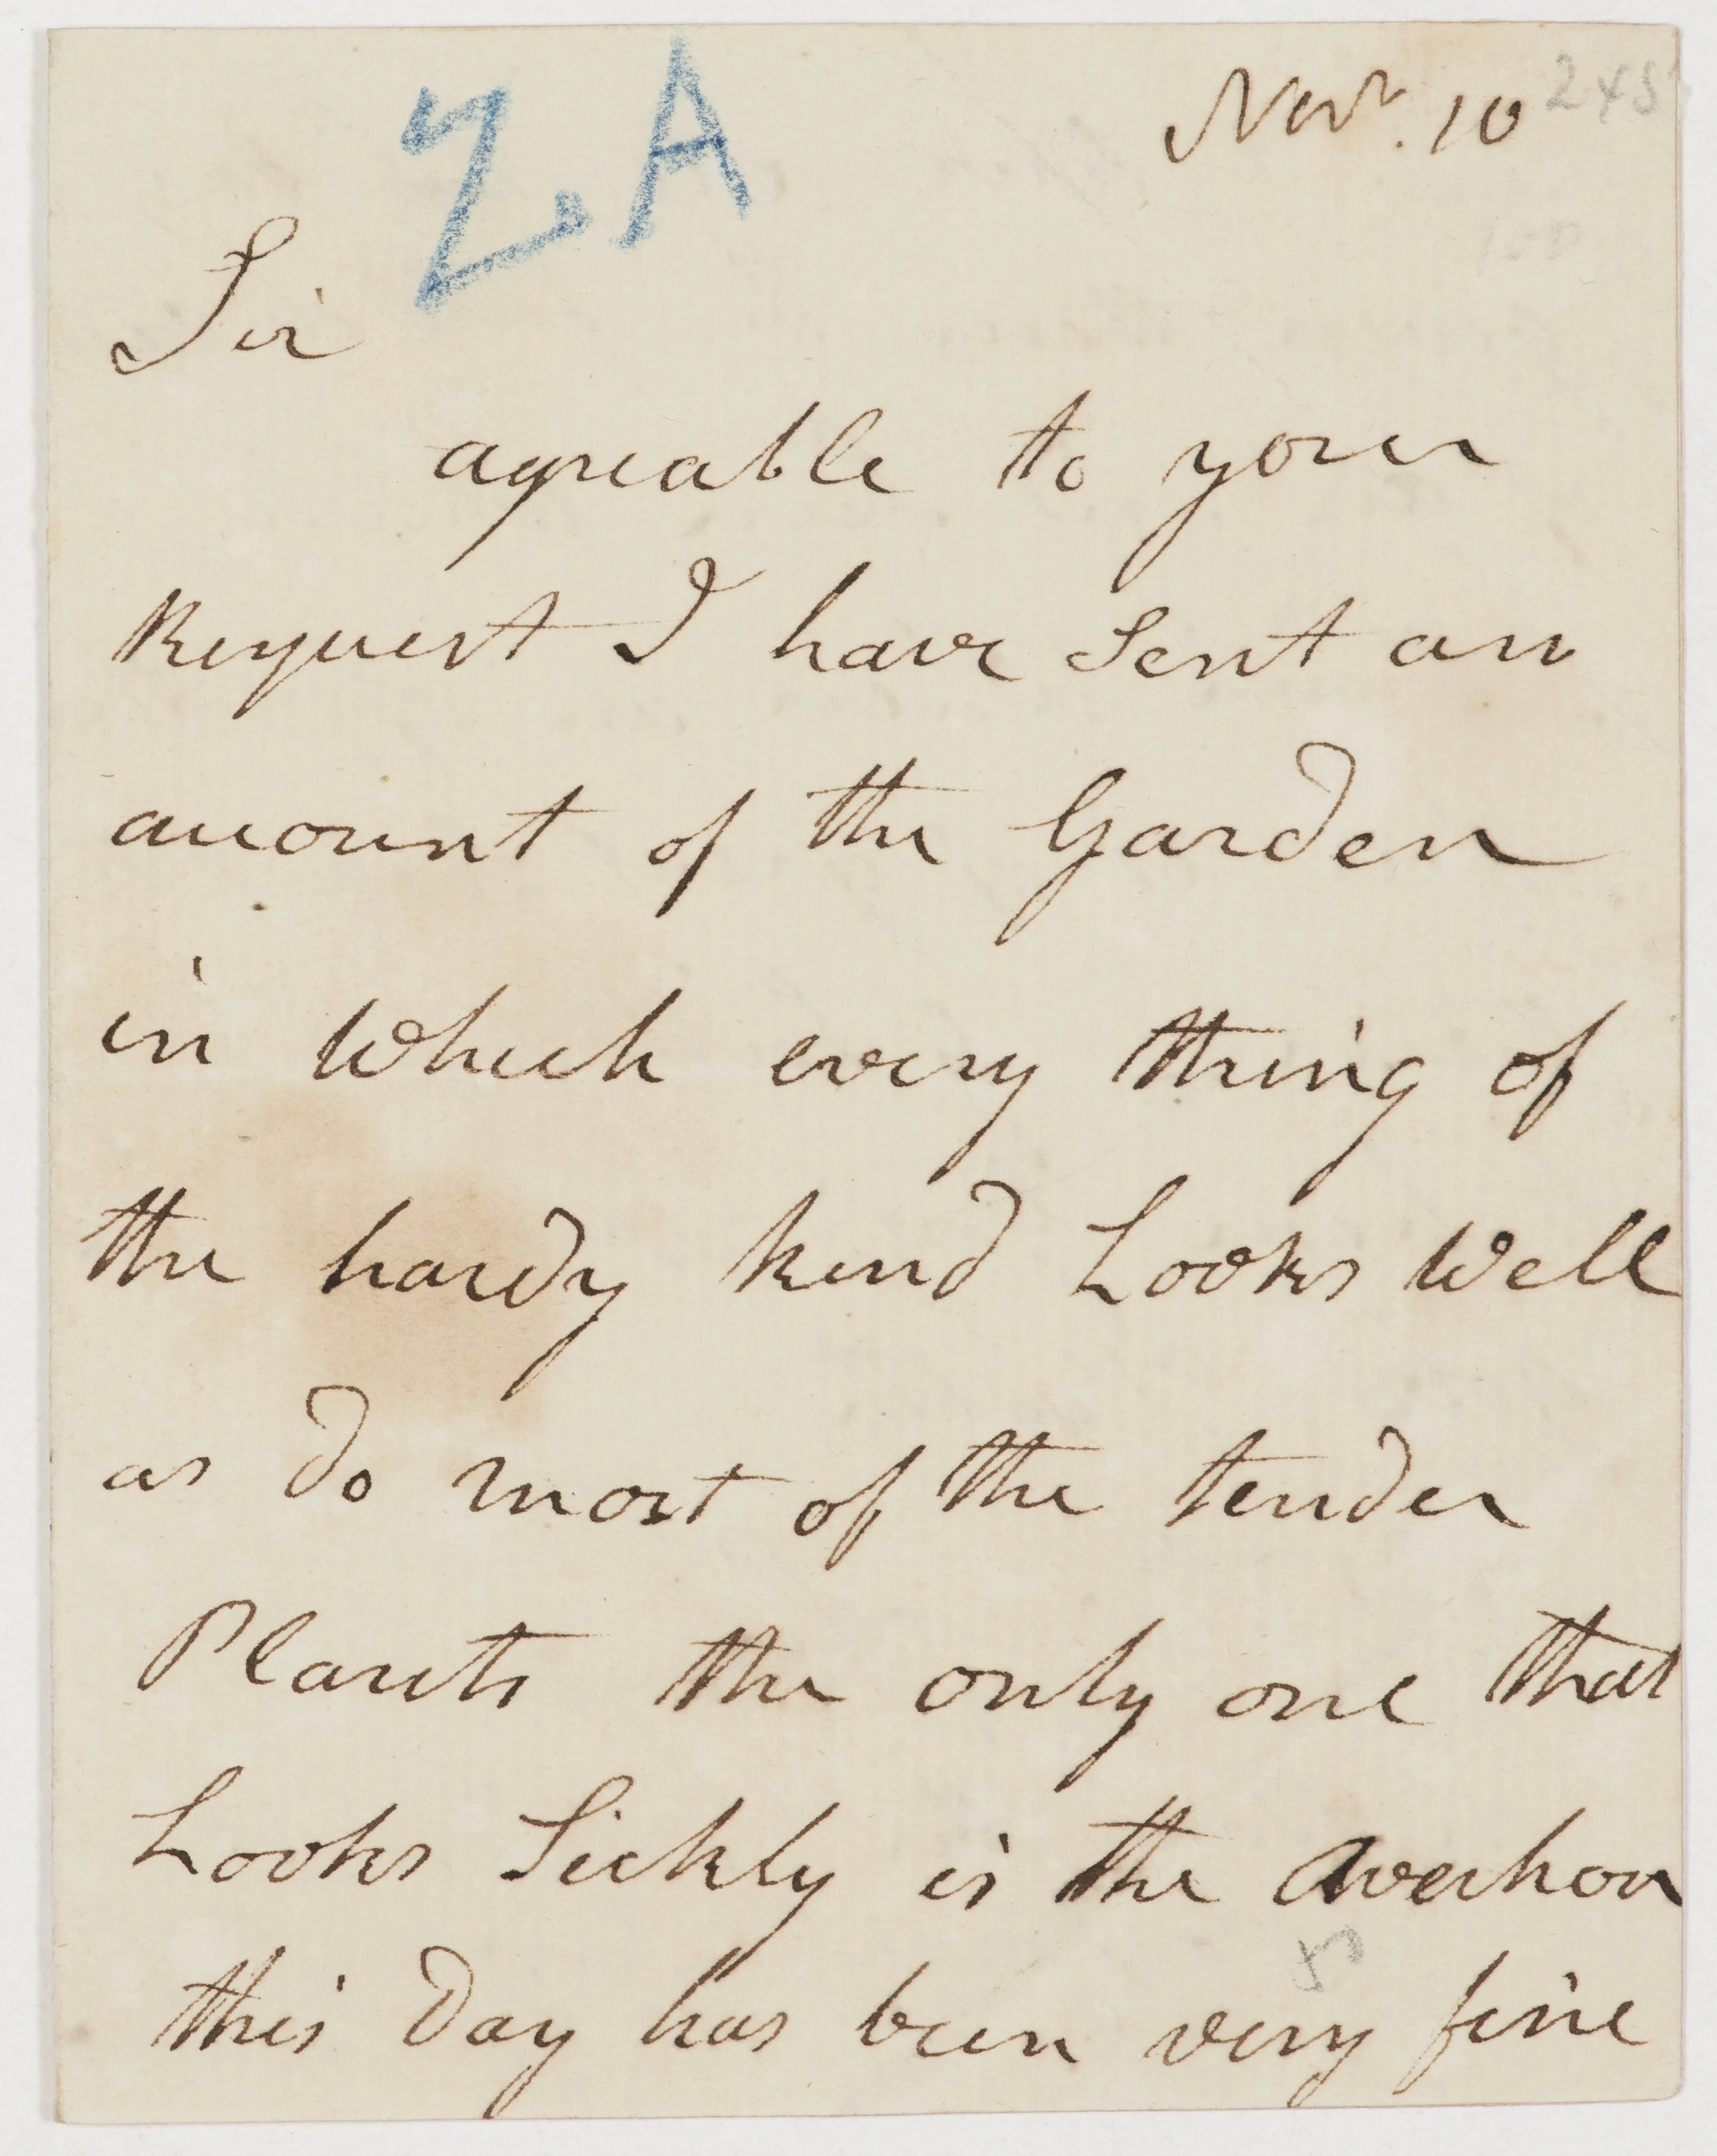 Z.A
Novr. 10
245
Sir
agreable to your
Request I have Sent an
account of the Garden
in Which every thing of
the hardy kind Looks Well
as do most of the tender
Plants the only one that
Looks Sickly is the Averhoa
this Day has been very fine